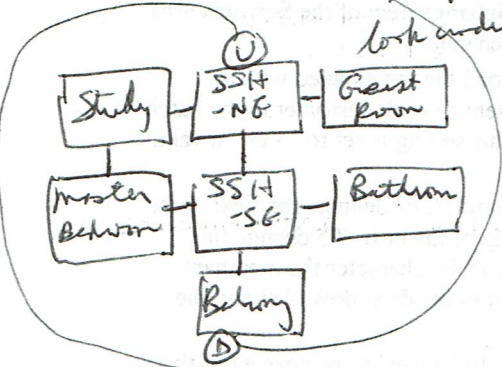 U
look under
Study
SSH
-NE
Guest
Room
Master
Bedroom
SSH
-SE
Bathroom
Balcony
D